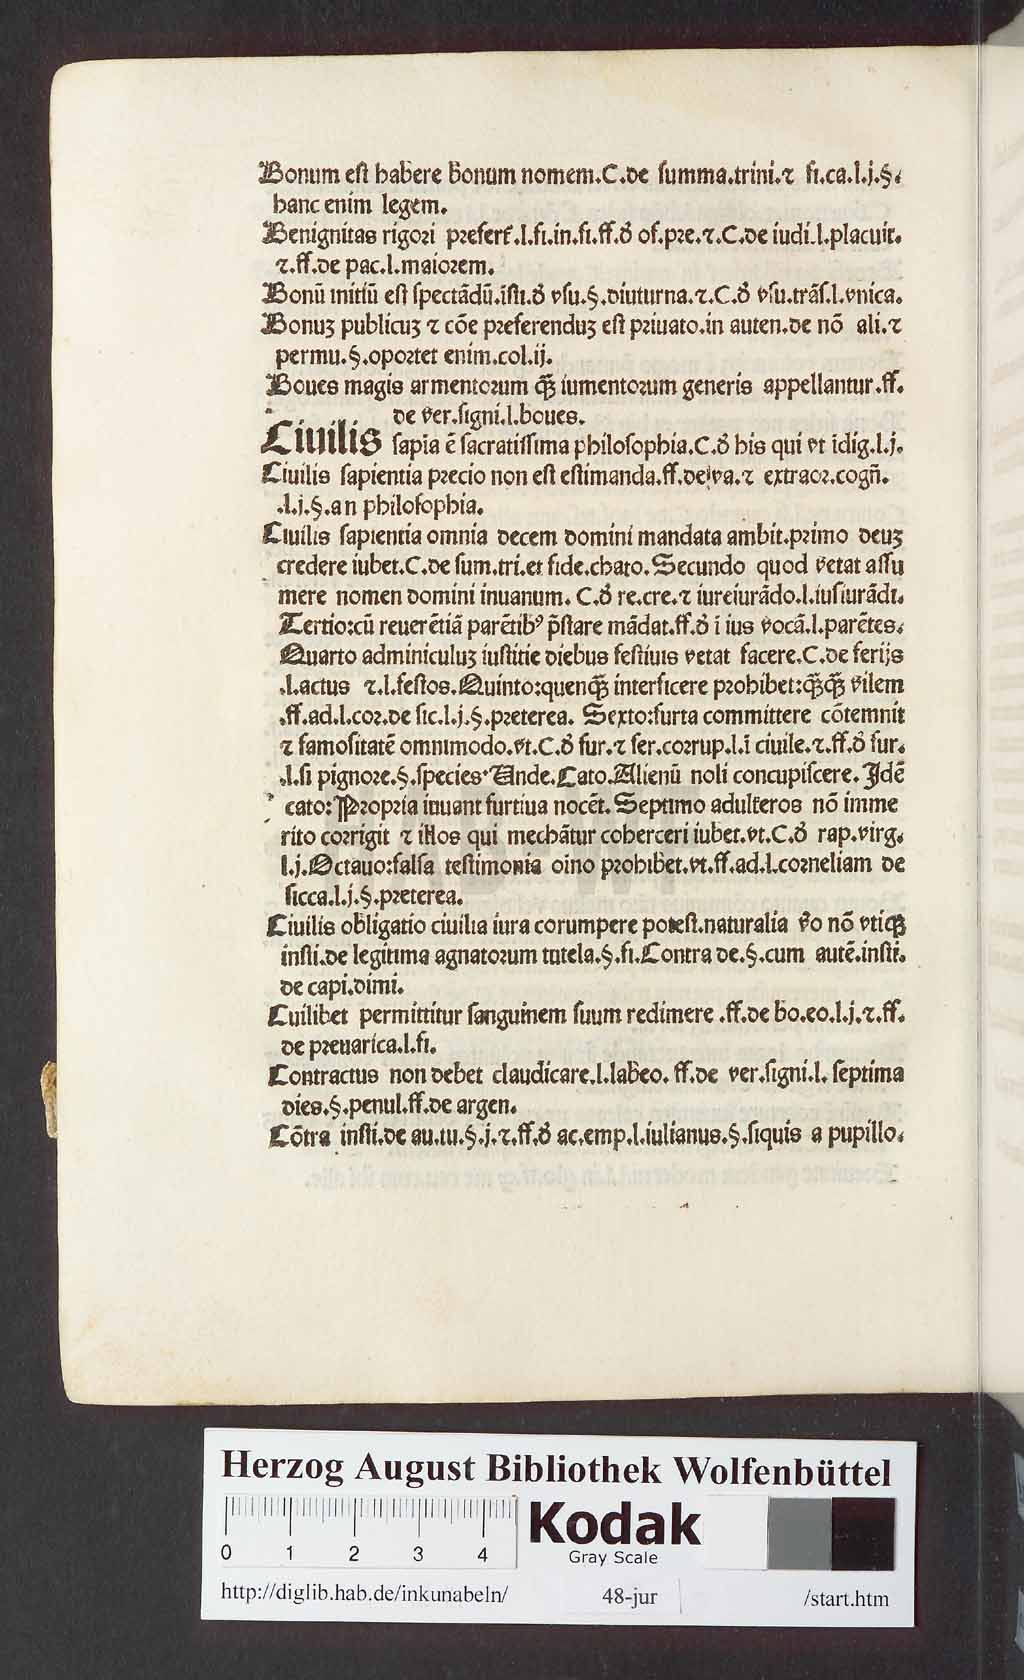 Bonum est habere bonum nomem.C.de summa.trini.⁊ fi.ca.l.j.§.
hanc enim legem.
Benignitas rigori prefert̄.l.fi.in.fi.ff.đ of.pre.⁊.C.de iudi.l.placuit.
⁊.ff.de pac.l.maiorem.
Bonū initiū est spectādū.īsti.đ vsu.§.diuturna.⁊.C.đ vsu.trāſ.l.vnica.
Bonuꝫ publicuꝫ ⁊ cōe preferenduꝫ est priuato.in auten.de nō ali.⁊
permu.§.oportet enim.col.ij.
Boues magis armentorum q̄ꝫ iumentorum generis appellantur.ff.
de ver.signi.l.boues.
Ciuilis sapīa ē sacratissima philosophia.C.đ his qui vt īdig.l.j.
Ciuilis sapientia precio non est estimanda.ff.de va.⁊ extraor.cogn̄.
.l.j.§.an philosophia.
Ciuilis sapientia omnia decem domini mandata ambit.primo deuꝫ
credere iubet.C.de sum.tri.et fide.chato.Secundo quod vetat assu
mere nomen domini inuanum. C.đ re.cre.⁊ iureiurādo.l.iusiurādi.
Tertio:cū reuerētiā parētibꝰ p̄stare mādat.ff.đ ī ius vocā.l.parētes.
Quarto adminiculuꝫ iustitie diebus festiuis vetat facere.C.de ferijs
.l.actus ⁊.l.festos.Quinto:quenq̄ꝫ interficere prohibet:q̄ꝫq̄ꝫ vilem
.ff.ad.l.cor.de sic.l.j.§.preterea. Sexto:furta committere cōtemnit
⁊ famositatē omnimodo.vt.C.đ fur.⁊ ser.corrup.l.ī ciuile.⁊.ff.đ fur.
.l.si pignore.§.species.Unde.Cato.Alienū noli concupiscere.Idē
cato:Propria iuuant furtiua nocēt.Septimo adulteros nō imme
rito corrigit ⁊ illos qui mechātur coherceri iubet.vt.C.đ rap.virg.
l.j.Octauo:falsa testimonia oīno prohibet.vt.ff.ad.l.corneliam de
sicca.l.j.§.preterea.
Ciuilis obligatio ciuilia iura corumpere potest.naturalia v̄o nō vtiqꝫ
insti.de legitima agnatorum tutela.§.fi.Contra de.§.cum autē.insti.
de capi.dimi.
Cuilibet permittitur sanguinem suum redimere .ff.de bo.eo.l.j.⁊.ff.
de preuarica.l.fi.
Contractus non debet claudicare.l.labeo. ff.de ver.signi.l. septima
dies.§.penul.ff.de argen.
Cōtra insti.de au.tu.§.j.⁊.ff.đ ac.emp.l.iulianus.§.siquis a pupillo.
HAB-WF
Herzog August Bibliothek Wolfenbüttel
0 1 2 3 4
Kodak
Gray Scale
http://diglib.hab.de/inkunabeln/ 48-jur /start.htm